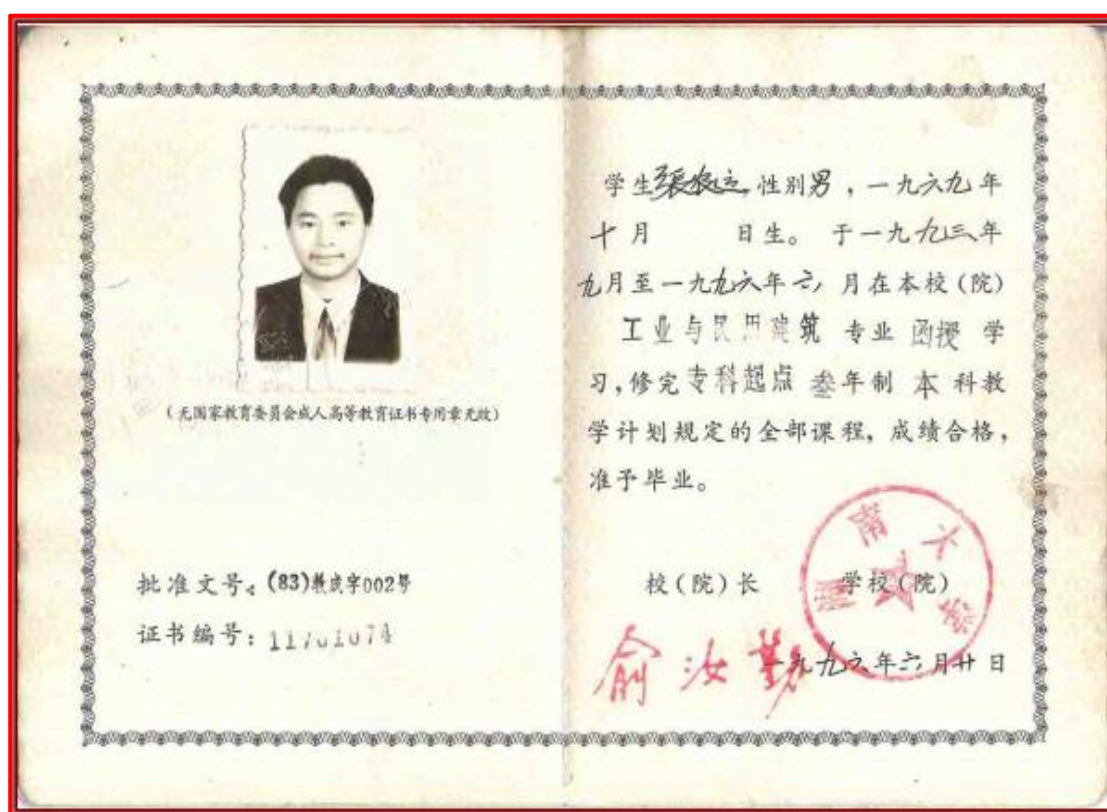 (无国家教育委员会成人高等教育证书专用章无效)
批准文号:(83)教成字002号
证书编号:
学生張 性别男,一九六九年
十月 日生。于一九九三年
九月至一九九六年六月在本校(院)
工业与民用建筑 专业 函授 学
习,修完专科起点 叁年制 本 科教
学计划规定的全部课程,成绩合格,
准予毕业。
校(院)长 学校(院)
湖南大学
俞汝勤
一九九六年六月廿日